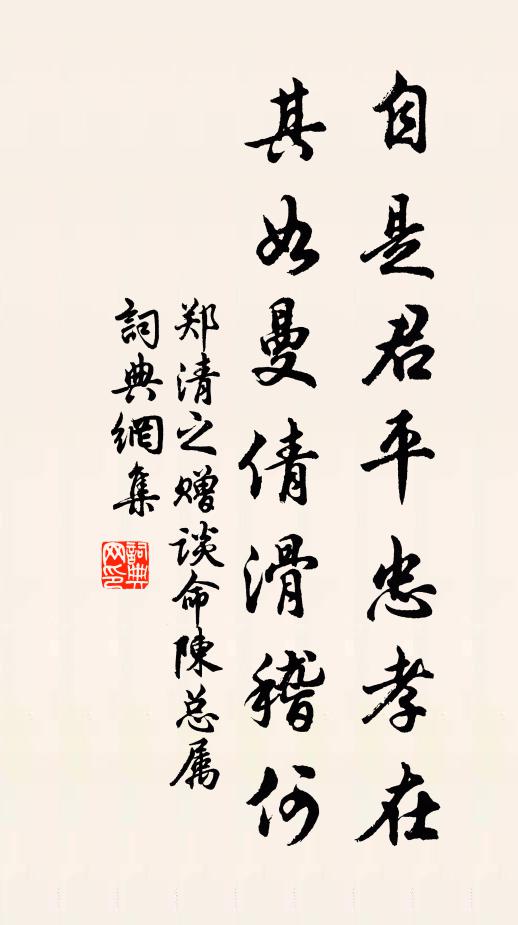 自是君平忠孝在
其如曼倩滑稽何
郑清之赠谈命陳总属
詞典網集
詞典网印